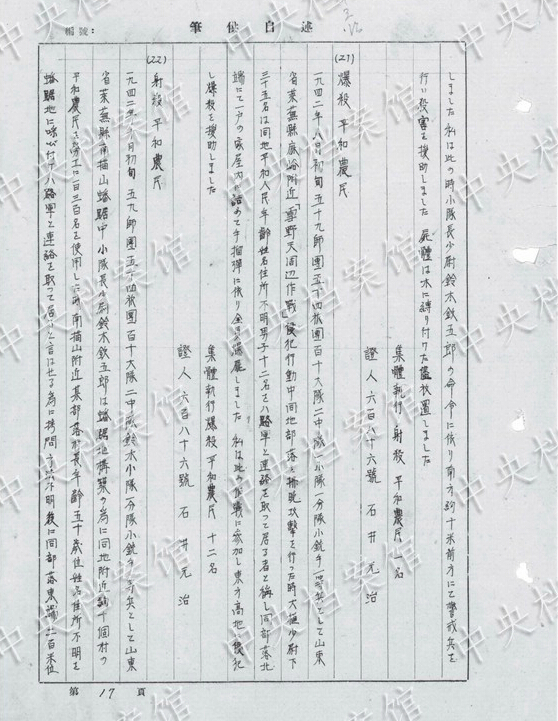 述自供筆
編號:
しました 私は此の時小隊長少尉鈴木鉄五郎の命令に依り前方約十米前方にて警戒兵を
行い殺害を援助しました 屍體は木に縛り付けた儘放置しました
集體執行 射殺 平和農民 一名
證人 六百八十六號 石井元治
(21)
爆殺 平和農民
一九四二年八月初旬 五十九師團五十四旅團百十大隊二中隊一小隊一分隊小銃手一等兵として山東
省萊蕪縣 附近「雪野天周辺作戰」侵犯行動中同地部落を 攻撃を行った時大 少尉下
三十五名は同地平和人民年齡姓名住所不明男子十二名を八路軍と連絡を取って居る者と稱し同部落北
端にて一户の家屋内に詰めて手榴彈に依り全 爆 しました 私は此の作戰に參加し東方高地 侵犯
し爆殺を援助しました
集體執行 爆殺 平和農民 十二名
證人 六百八十六號 石井元治
(22)
射殺 平和農民
一九四二年 月初旬 五九師團五十四旅團百十大隊二中隊鈴木小隊一分隊小銃手一等兵として山東
省萊蕪縣南描山蟠踞中小隊長少尉鈴木鉄五郎は蟠踞地構築の為に同地附近約十個村の
平和農民を 工に一日三百名を使用した時 南描山附近某部落村長年齡五十歲位姓名住所不明を
蟠踞地に呼び付け八路軍と連絡を取って居 と言はせる為に拷問 不明 後に同部落東 二百米位
第 17 頁